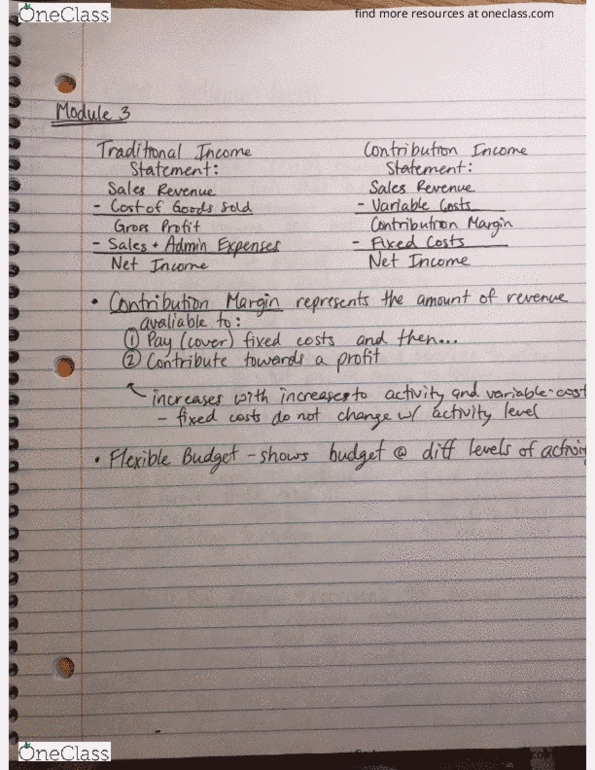 OneClass
find more resources at oneclass.com
Module 3
Traditional Income
Statement:
Sales Revenue
- Cost of Goods Sold
Gross Profit
- Sales + Admin Expenses
Net Income
Contribution Income
Statement:
Sales Revenue
- Variable Costs
Contribution Margin
- Fixed Costs
Net Income
• Contribution Margin represents the amount of revenue
avaliable to:
① Pay (cover) fixed costs and then...
② Contribute towards a profit
increases with increases to activity and variable-cost
- fixed costs do not change w/ activity level
• Flexible Budget - shows budget @ diff levels of
OneClass